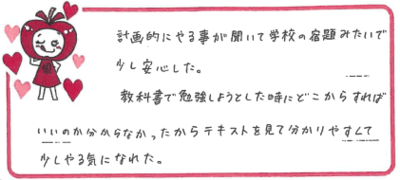 計画的にやる事が聞いて学校の宿題みたいで
少し安心した。
教科書で勉強しようとした時にどこからすれば
いいのか分からなかったからテキストを見て分かりやすくて
少しやる気になれた。